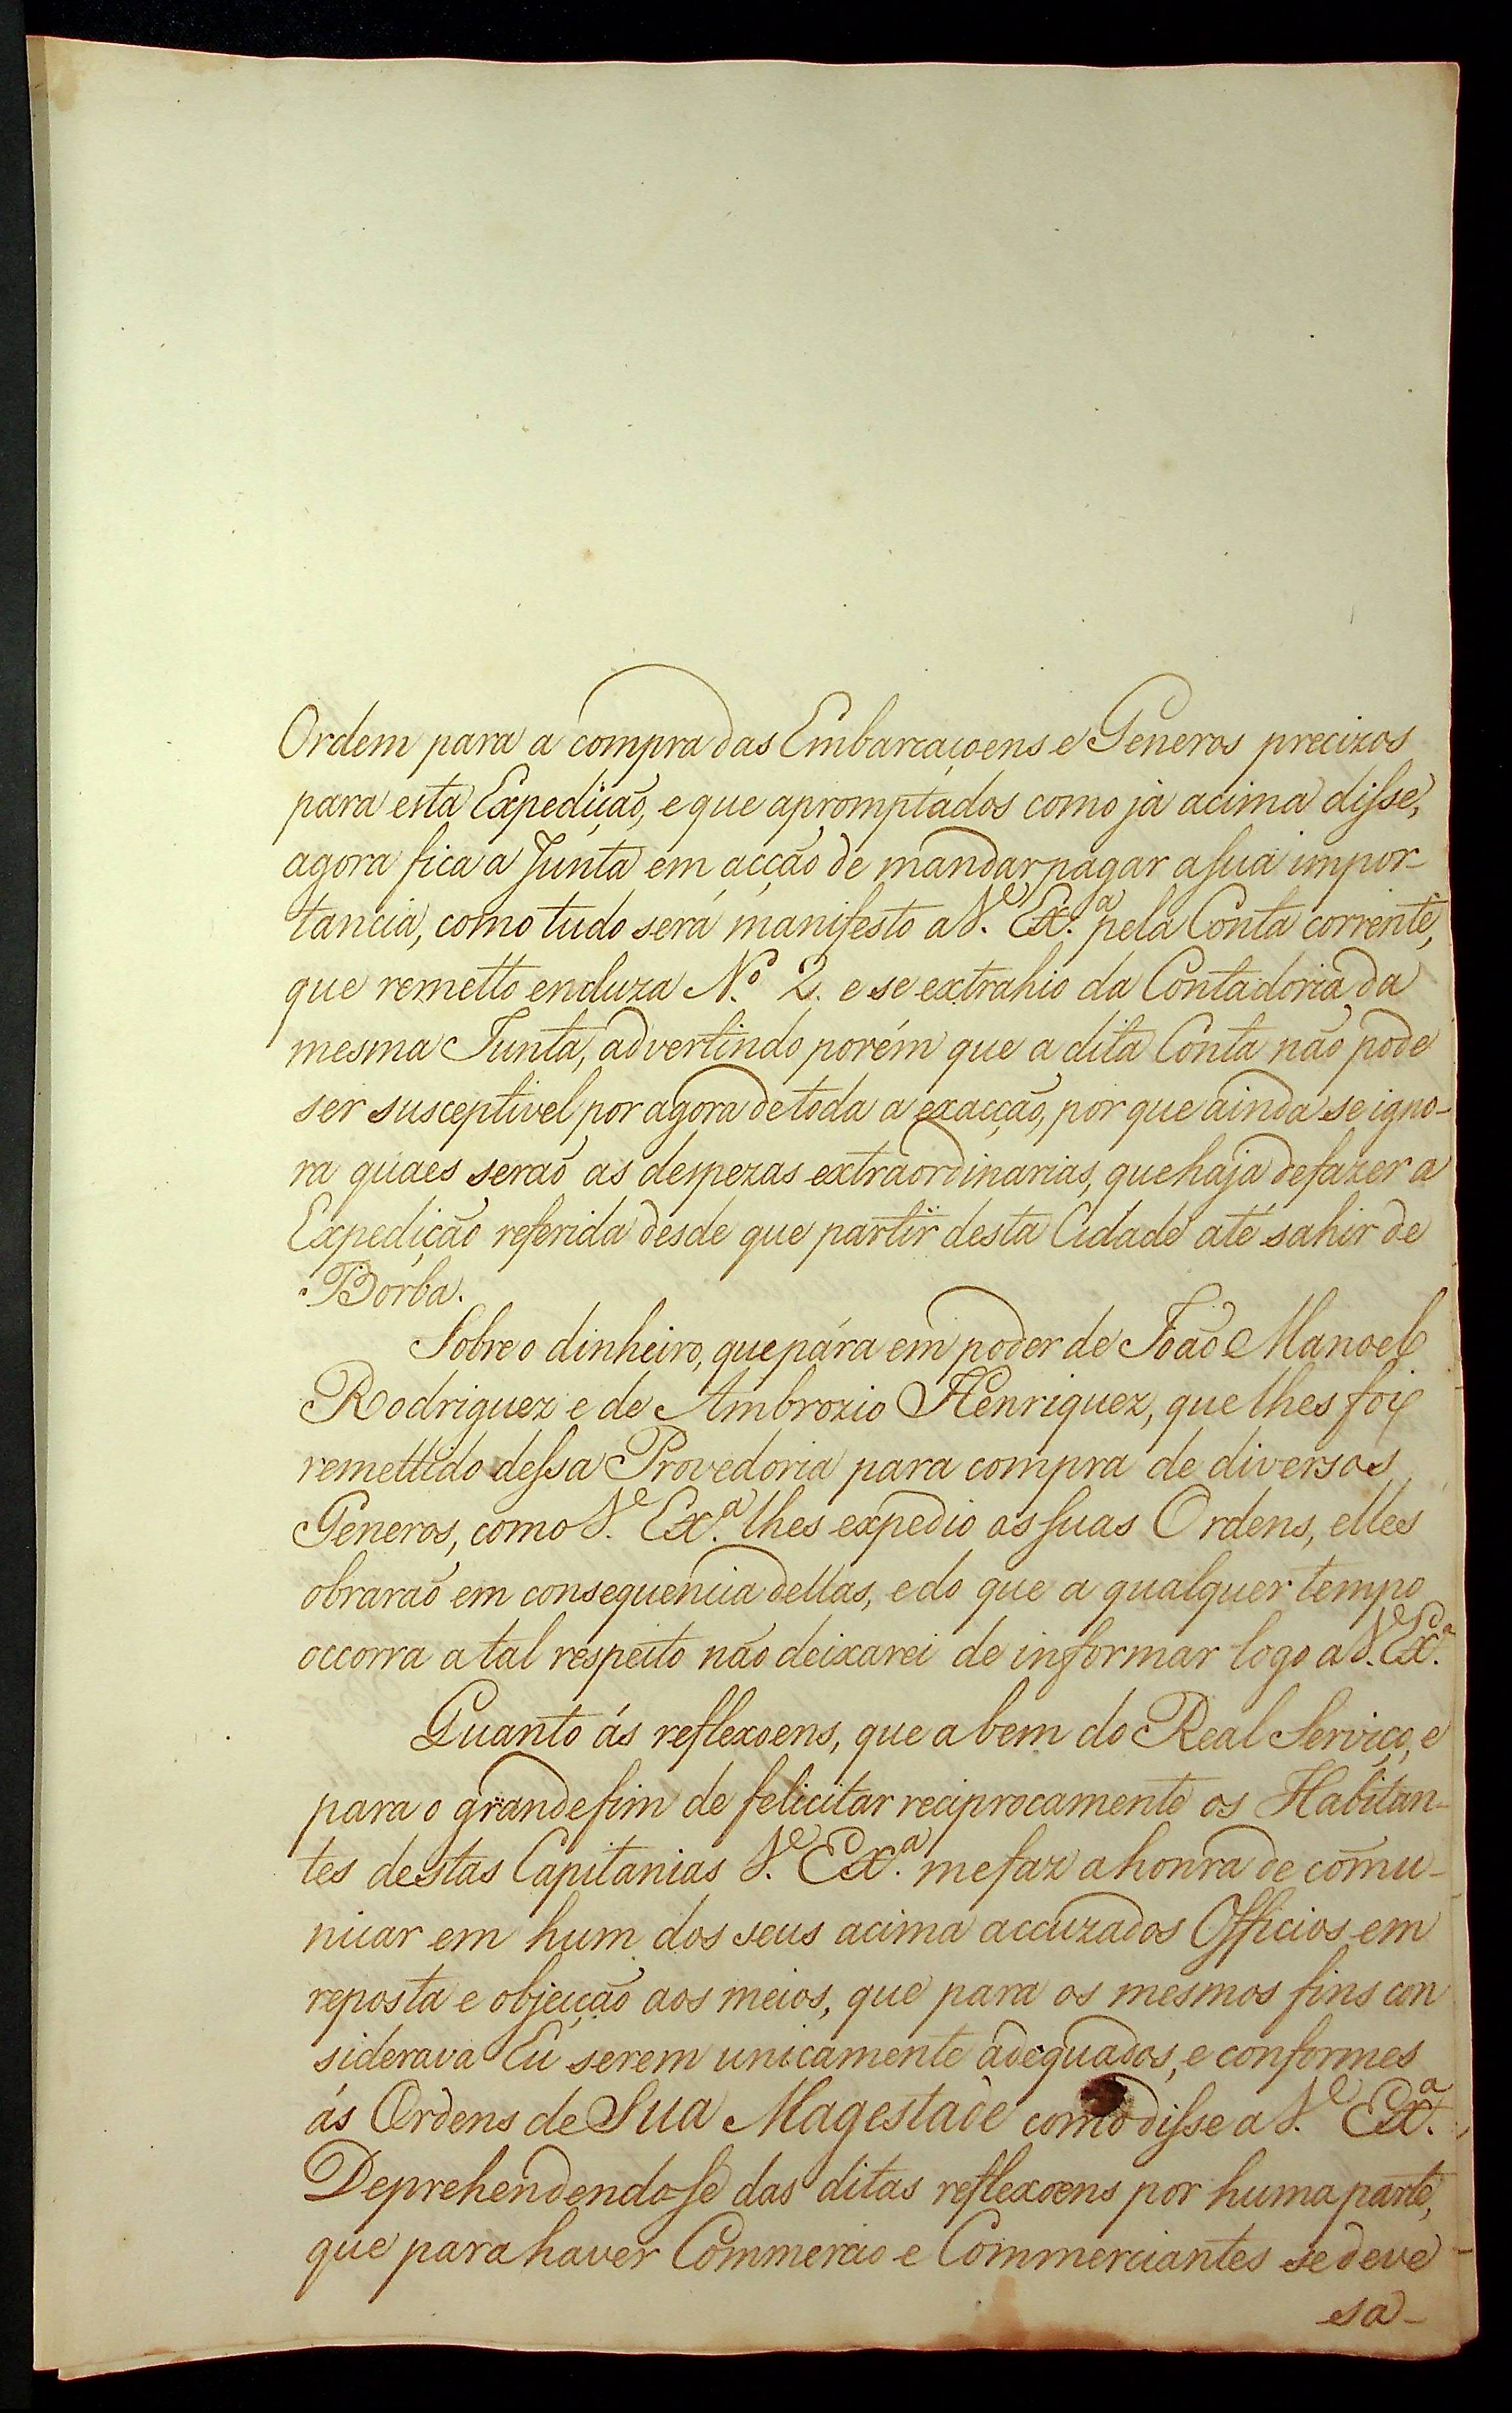 Ordem para a compra das Embarcaçoens e Generos precizos
para esta Expedição, e que apromptados como já acima disse,
agora fica a Junta em acção de mandar pagar a sua impor-
tancia, como tudo será manifesto a V.ª Ex.ª pela Conta corrente,
que remetto encluza N.º 2. e se extrahio da Contadoria da
mesma Junta, advertindo porém que a dita Conta não pode
ser susceptivel por agora de toda a exacção, por que ainda se igno-
ra quaes serão as despezas extraordinarias, que haja de fazer a
Expedição referida desde que partir desta Cidade até sahir de
Borba.
Sobre o dinheiro, que pára em poder de João Manoel
Rodriguez e de Ambrozio Henriquez, que lhes foi
remettido dessa Provedoria para compra de diversos
Generos, como V.ª Ex.ª lhes expedio as suas Ordens, elles
obrarão em consequencia dellas, e do que a qualquer tempo
occorra a tal respeito não deixarei de informar logo a V.ª Ex.ª
Quanto ás reflexoens, que a bem do Real Serviço, e
para o grande fim de felicitar reciprocamente os Habitan-
tes destas Capitanias V.ª Ex.ª me faz a honra de comu-
nicar em hum dos seus acima accuzados Officios em
reposta e objecção aos meios, que para os mesmos fins con
siderava Eu serem unicamente adequados, e conformes
ás Ordens de Sua Magestade como disse a V.ª Ex.ª
Deprehendendo-se das ditas reflexoens por huma parte,
que para haver Commercio e Commerciantes se deve
sa-